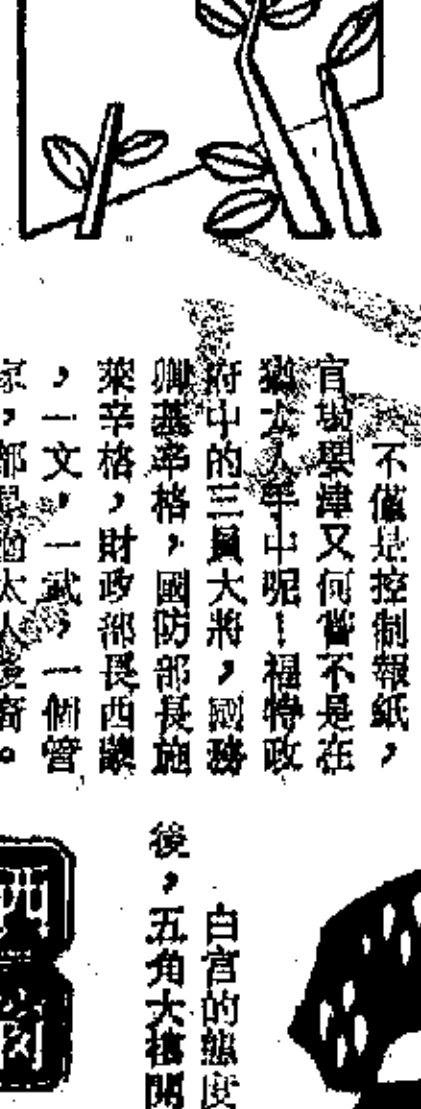 不僅是控制報紙，
官場要津又何嘗不是在
猶太人手中呢！福特政
府中的三員大將，國務
卿基辛格，國防部長施
萊辛格，財政部長西蒙
，一文，一武，一個管
家，都是猶太人後裔。
白宮的態度
後，五角大樓開